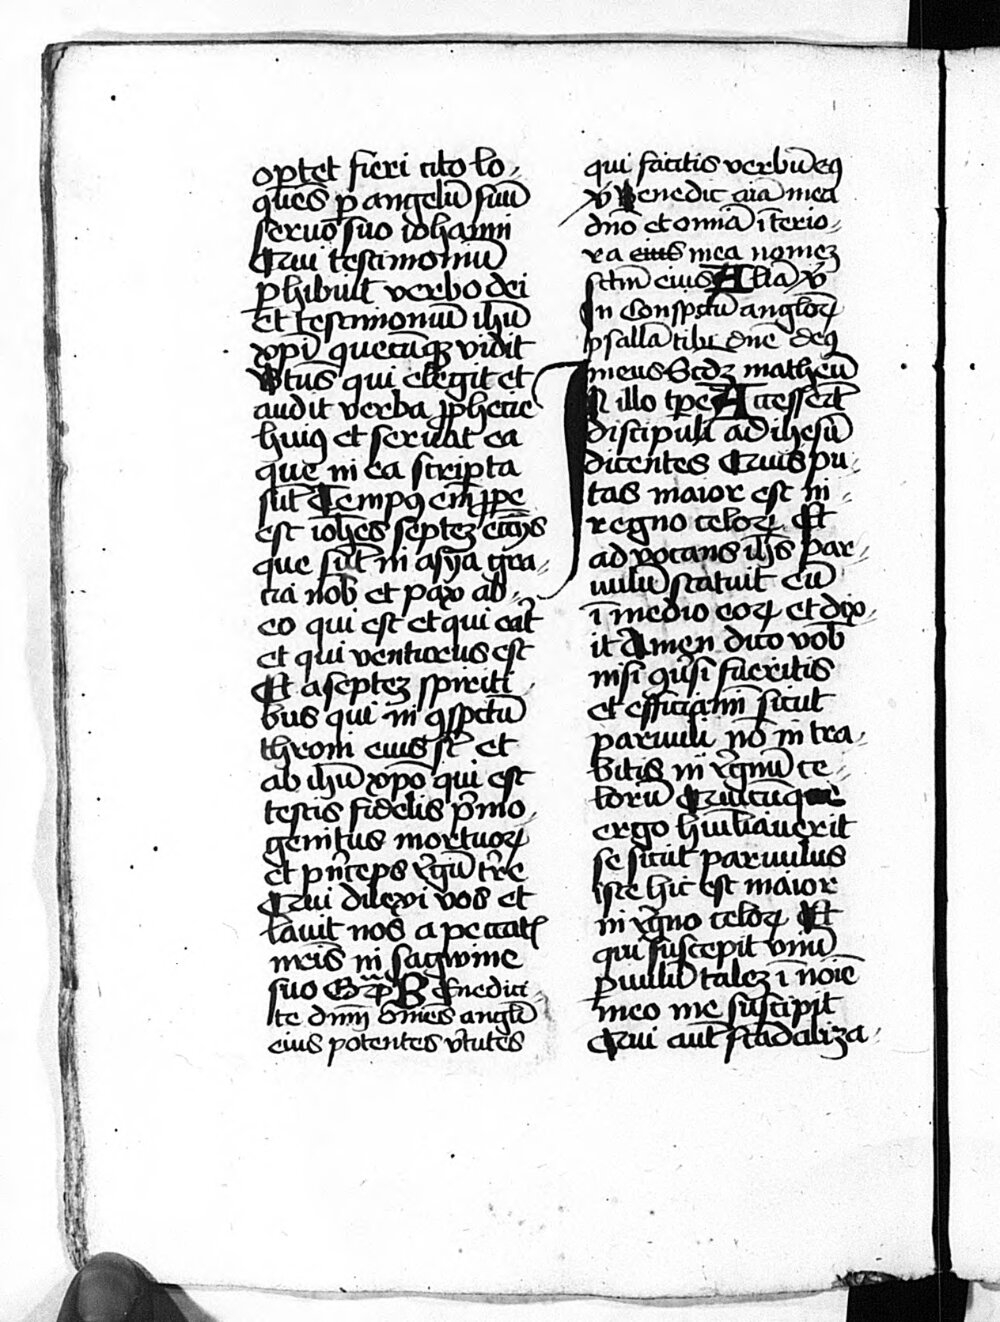 oꝑtet fieri cito lo⸗
quēs ꝑ angelū suū
seruo suo iohanni
Qui testimoniū
ꝑhibuit verbo dei
Et testimoniū ihū
xp̄i quecūqꝫ vidit
Btūs qui elegit et
audit verba ꝓphetie
huiꝰ et seruat ea
que in ea scripta
sūt Tempꝰ em̄ ꝓpe
est ioh̄es septeꝫ
que sūt in asya gra⸗
cia nob̄ et pax ab⸗
eo qui est et qui erāt
et qui venturus est
Et a septeꝫ spiriti
bus qui in ꝯspctū
throni eius st̄ et
ab ihū xp̄o qui est
testis fidelis p̄mo
genitus mortuoꝝ
et pn̄ceps r̄gū tr̄e
Qui dilexi vos et
lauit nos a peccatꝭ
meis in sagwine
suo Benedici
te dnm̄ om̄es angl̄i
eius potentes v̄tutes
qui facitis verbū eꝰ
v̄ Benedic aīa mea
dn̄o et omīa īterio⸗
ra eius mea nomeꝫ
sctm̄ eius Alla v̄
In Conspctū angloꝝ
psallā tibi dn̄e deꝰ
meus Scdꝫ matheū
In illo tp̄e Accesser̄t
discipuli ad ihesū
dicentes Quis pu⸗
tas maior est in⸗
regno celoꝝ Et
aduocans ih̄s par⸗
uulū statuit eū
ī medio eoꝝ et dix⸗
it Amen dico vob̄
nisi ꝯūsi fueritis
et efficiamī sicut
paruuli nō intra⸗
bitis in r̄gnū ce⸗
lorū Quicūque
ergo hūiliauerit
se sicut paruulus
iste hic est maior
in r̄gno celoꝝ Et
qui susceꝑit vnū
ꝑuulū taleꝫ ī noīe
meo me suscipit
Qui aut̄ scādaliza⸗